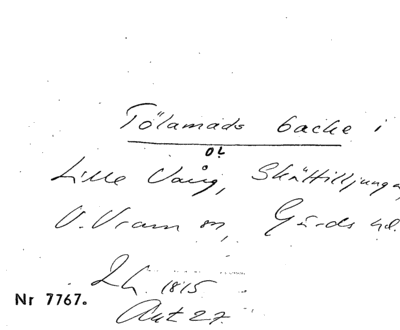 Tölamads backe i
öl
Lille Vång, Skättilljunga,
V. Vram sn, Gärds hd.
Lh. 1815
Nr 7767.
Akt 27